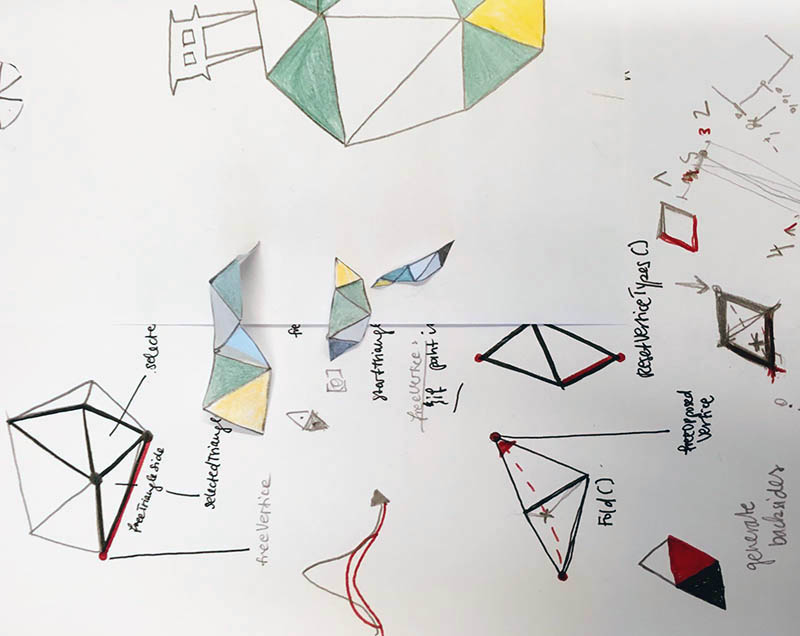 selecte
freeTriangleSide
selectedTriangle
freeVertice
fre
startTriangl
freeVertice:
gif point i
resetVerticeTypes()
freeOpposed
Vertice
Fold()
generate
backsides
2
3
4